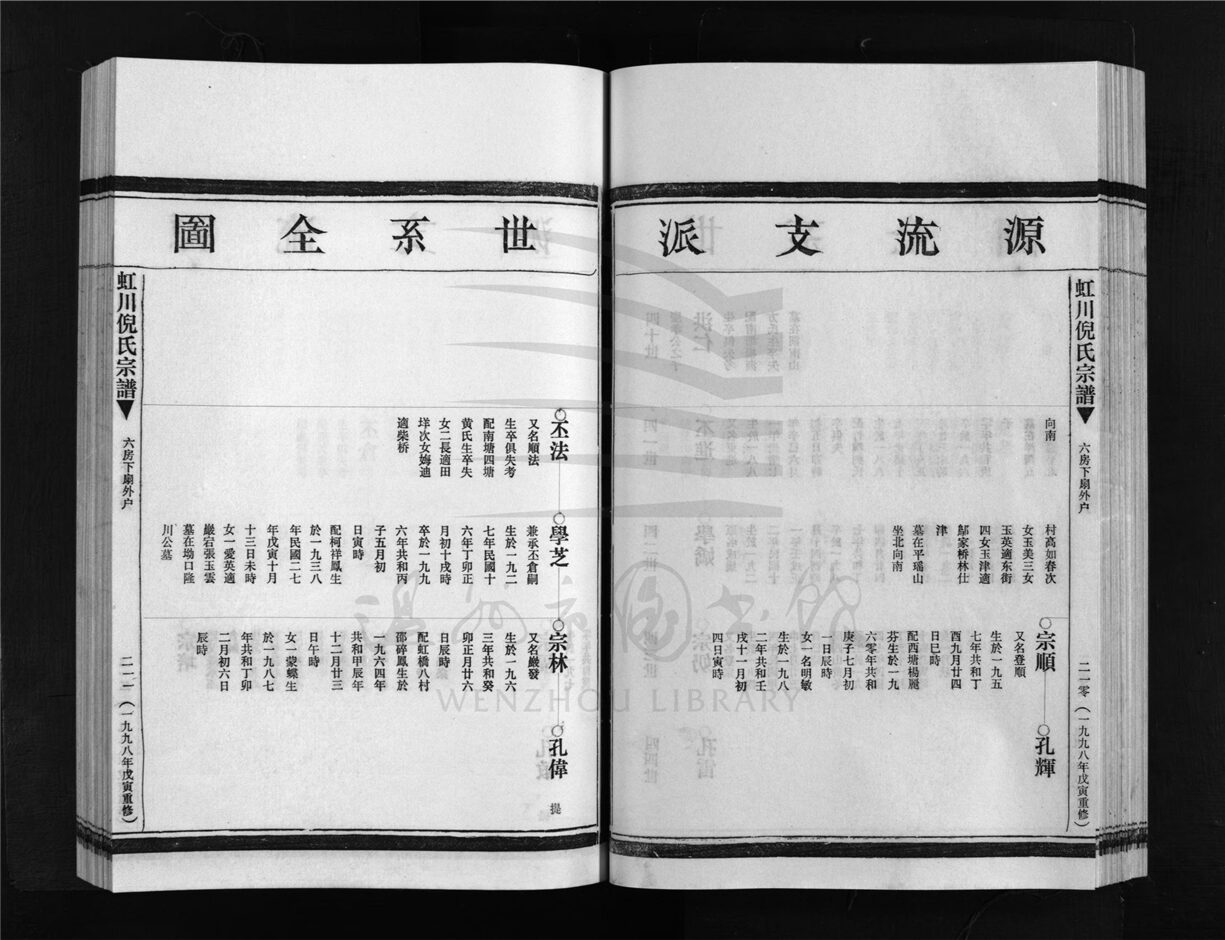 源流支派
虹川倪氏宗譜
六房下扇外户
二一零(一九九八年戊寅重修)
向南
村萬如春次
女玉美三女
玉英適东街
四女玉津適
鄔家桥林仕
津
墓在平瑤山
坐北向南
宗順
又名登順
生於一九五
七年共和丁
酉九月廿四
日巳時
配西塘楊麗
芬生於一九
六零年共和
庚子七月初
一日辰時
女一名明敏
生於一九八
二年共和壬
戌十一月初
四日寅時
孔輝
世系全圖
丕法
又名順法
生卒俱失考
配南塘四塘
黄氏生卒失
女二長適田
垟次女娒迪
適柴桥
學芝
兼承丕倉嗣
生於一九二
七年民國十
六年丁卯正
月初十戌時
卒於一九九
六年共和丙
子五月初
日寅時
配柯祥鳳生
於一九三八
年民國二七
年戊寅十月
十三日未時
女一愛英適
嚴宕張玉雲
墓在坳口隆
川公墓
宗林
又名嚴發
生於一九六
三年共和癸
卯正月廿六
日辰時
配虹橋八村
邵碎鳳生於
一九六四年
共和甲辰年
十二月廿三
日午時
女一蒙蝶生
於一九八七
年共和丁卯
二月初六日
辰時
孔偉
提
虹川倪氏宗譜
六房下扇外户
二一一(一九九八年戊寅重修)
溫州市圖書館
WENZHOU LIBRARY